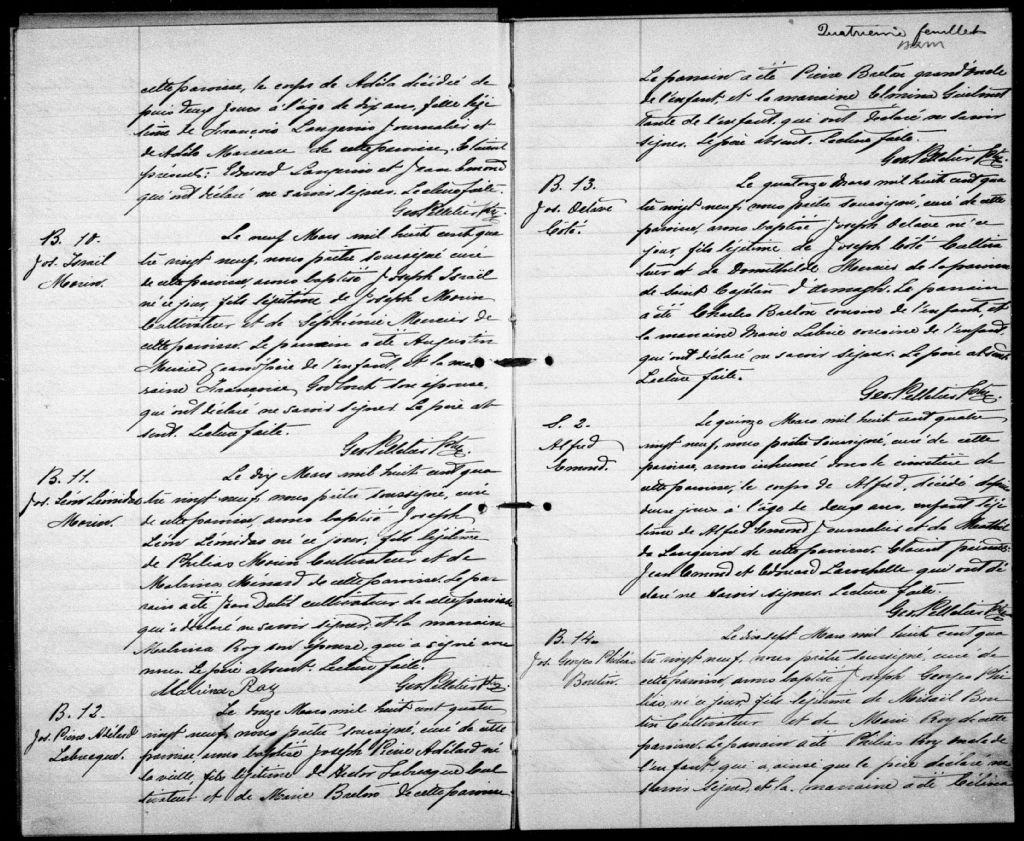 cette paroisse, le corps de Adèla décédée de
puis deux jours à l'âge de dix ans, fille légi
time de François Langevin Journalier et
de Adèle Marceau de cette paroisse. Etaient
présents: Edmond Langevin et Jean Emond
qui ont déclaré ne savoir signer. Lecture faite.
Geo. Pelletier Ptre.
B. 10.
Jos. Israil
Morin.
Le neuf Mars mil huit cent qua
tre vingt neuf, nous prêtre soussigné curé
de cette paroisse, avons baptisé Joseph Israël
né ce jour, fils légitime de Joseph Morin
Cultivateur et de Sephémie Mercier de
cette paroisse. Le parrain a été Augustin
Mercier grand'père de l'enfant, et la mar
raine Françoise Godbout son épouse,
qui ont déclaré ne savoir signer. Le père ab
sent. Lecture faite.
Geo. Pelletier Ptre.
B. 11.
Jos. Léon Léonidas
Morin.
Le dix Mars mil huit cent qua
tre vingt neuf, nous prêtre soussigné, curé
de cette paroisse, avons baptisé Joseph
Léon Léonidas né ce jour, fils légitime
de Philias Morin Cultivateur et de
Malvina Ménard de cette paroisse. Le par
rain a été Jean Dutil cultivateur de cette paroisse
qui a déclaré ne savoir signer, et la marraine
Malvina Roy son épouse, qui a signé avec
nous. Le père absent. Lecture faite.
Malvina Roy Geo. Pelletier Ptre.
B. 12.
Jos. Pierre Adélard
Labrecque.
Le onze Mars mil huit cent quatre
vingt neuf, nous prêtre soussigné, curé de cette
paroisse, avons baptisé Joseph Pierre Adélard né
la veille, fils légitime de Hector Labrecque Cul
tivateur et de Marie Breton de cette paroisse
Quatrième feuillet
Le parrain a été Pierre Breton grand'oncle
de l'enfant, et la marraine Clorina Guilmet
tante de l'enfant, qui ont déclaré ne savoir
signer. Le père absent. Lecture faite.
Geo. Pelletier Ptre.
B. 13.
Jos. Octave
Coté.
Le quatorze Mars mil huit cent qua
tre vingt neuf, nous prêtre soussigné, curé de cette
paroisse, avons baptisé Joseph Octave né ce
jour, fils légitime de Joseph Coté Cultiva
teur et de Domithilde Mercier de la paroisse
de Saint Cajétan d'Armagh. Le parrain
a été Charles Breton cousin de l'enfant, et
la marraine Marie Labrie cousine de l'enfant,
qui ont déclaré ne savoir signer. Le père absent.
Lecture faite.
Geo. Pelletier Ptre.
S. 2.
Alfred
Emond.
Le quinze Mars mil huit cent quatre
vingt neuf, nous prêtre soussigné, curé de cette
paroisse, avons inhumé dans le cimetière de
cette paroisse, le corps de Alfred, décédé depuis
deux jours à l'âge de deux ans, enfant légi
time de Alfred Emond Journalier et de Mathil
de Langevin de cette paroisse. Etaient présents:
Jean Emond et Edouard Larochelle qui ont dé
claré ne savoir signer. Lecture faite.
Geo. Pelletier Ptre.
B. 14.
Jos. Georges Philias
Boutin.
Le dix sept Mars mil huit cent qua
tre vingt neuf, nous prêtre soussigné, curé de
cette paroisse, avons baptisé Joseph Georges Phi
lias, né ce jour, fils légitime de Misaël Bou
tin Cultivateur et de Marie Roy de cette
paroisse. Le parrain a été Philias Roy oncle de
l'enfant, qui a, ainsi que le père déclaré ne
savoir signer, et la marraine a été Célina